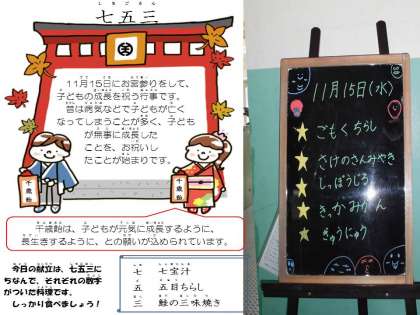 七五三
11月15日にお宮参りをして、
子どもの成長を祝う行事です。
昔は病気などで子どもが亡く
なってしまうことが多く、子ども
が無事に成長した
ことを、お祝いし
たことが始まりです。
千歳飴
千歳飴
千歳飴は、子どもが元気に成長するように、
長生きするように、との願いが込められています。
今日の献立は、七五三に
ちなんで、それぞれの数字
がついた料理です。
しっかり食べましょう！
七 七宝汁
五 五目ちらし
三 鮭の三味焼き
11月15日(水)
ごもくちらし
さけのさんみやき
しっぽうじる
きっかみかん
ぎゅうにゅう